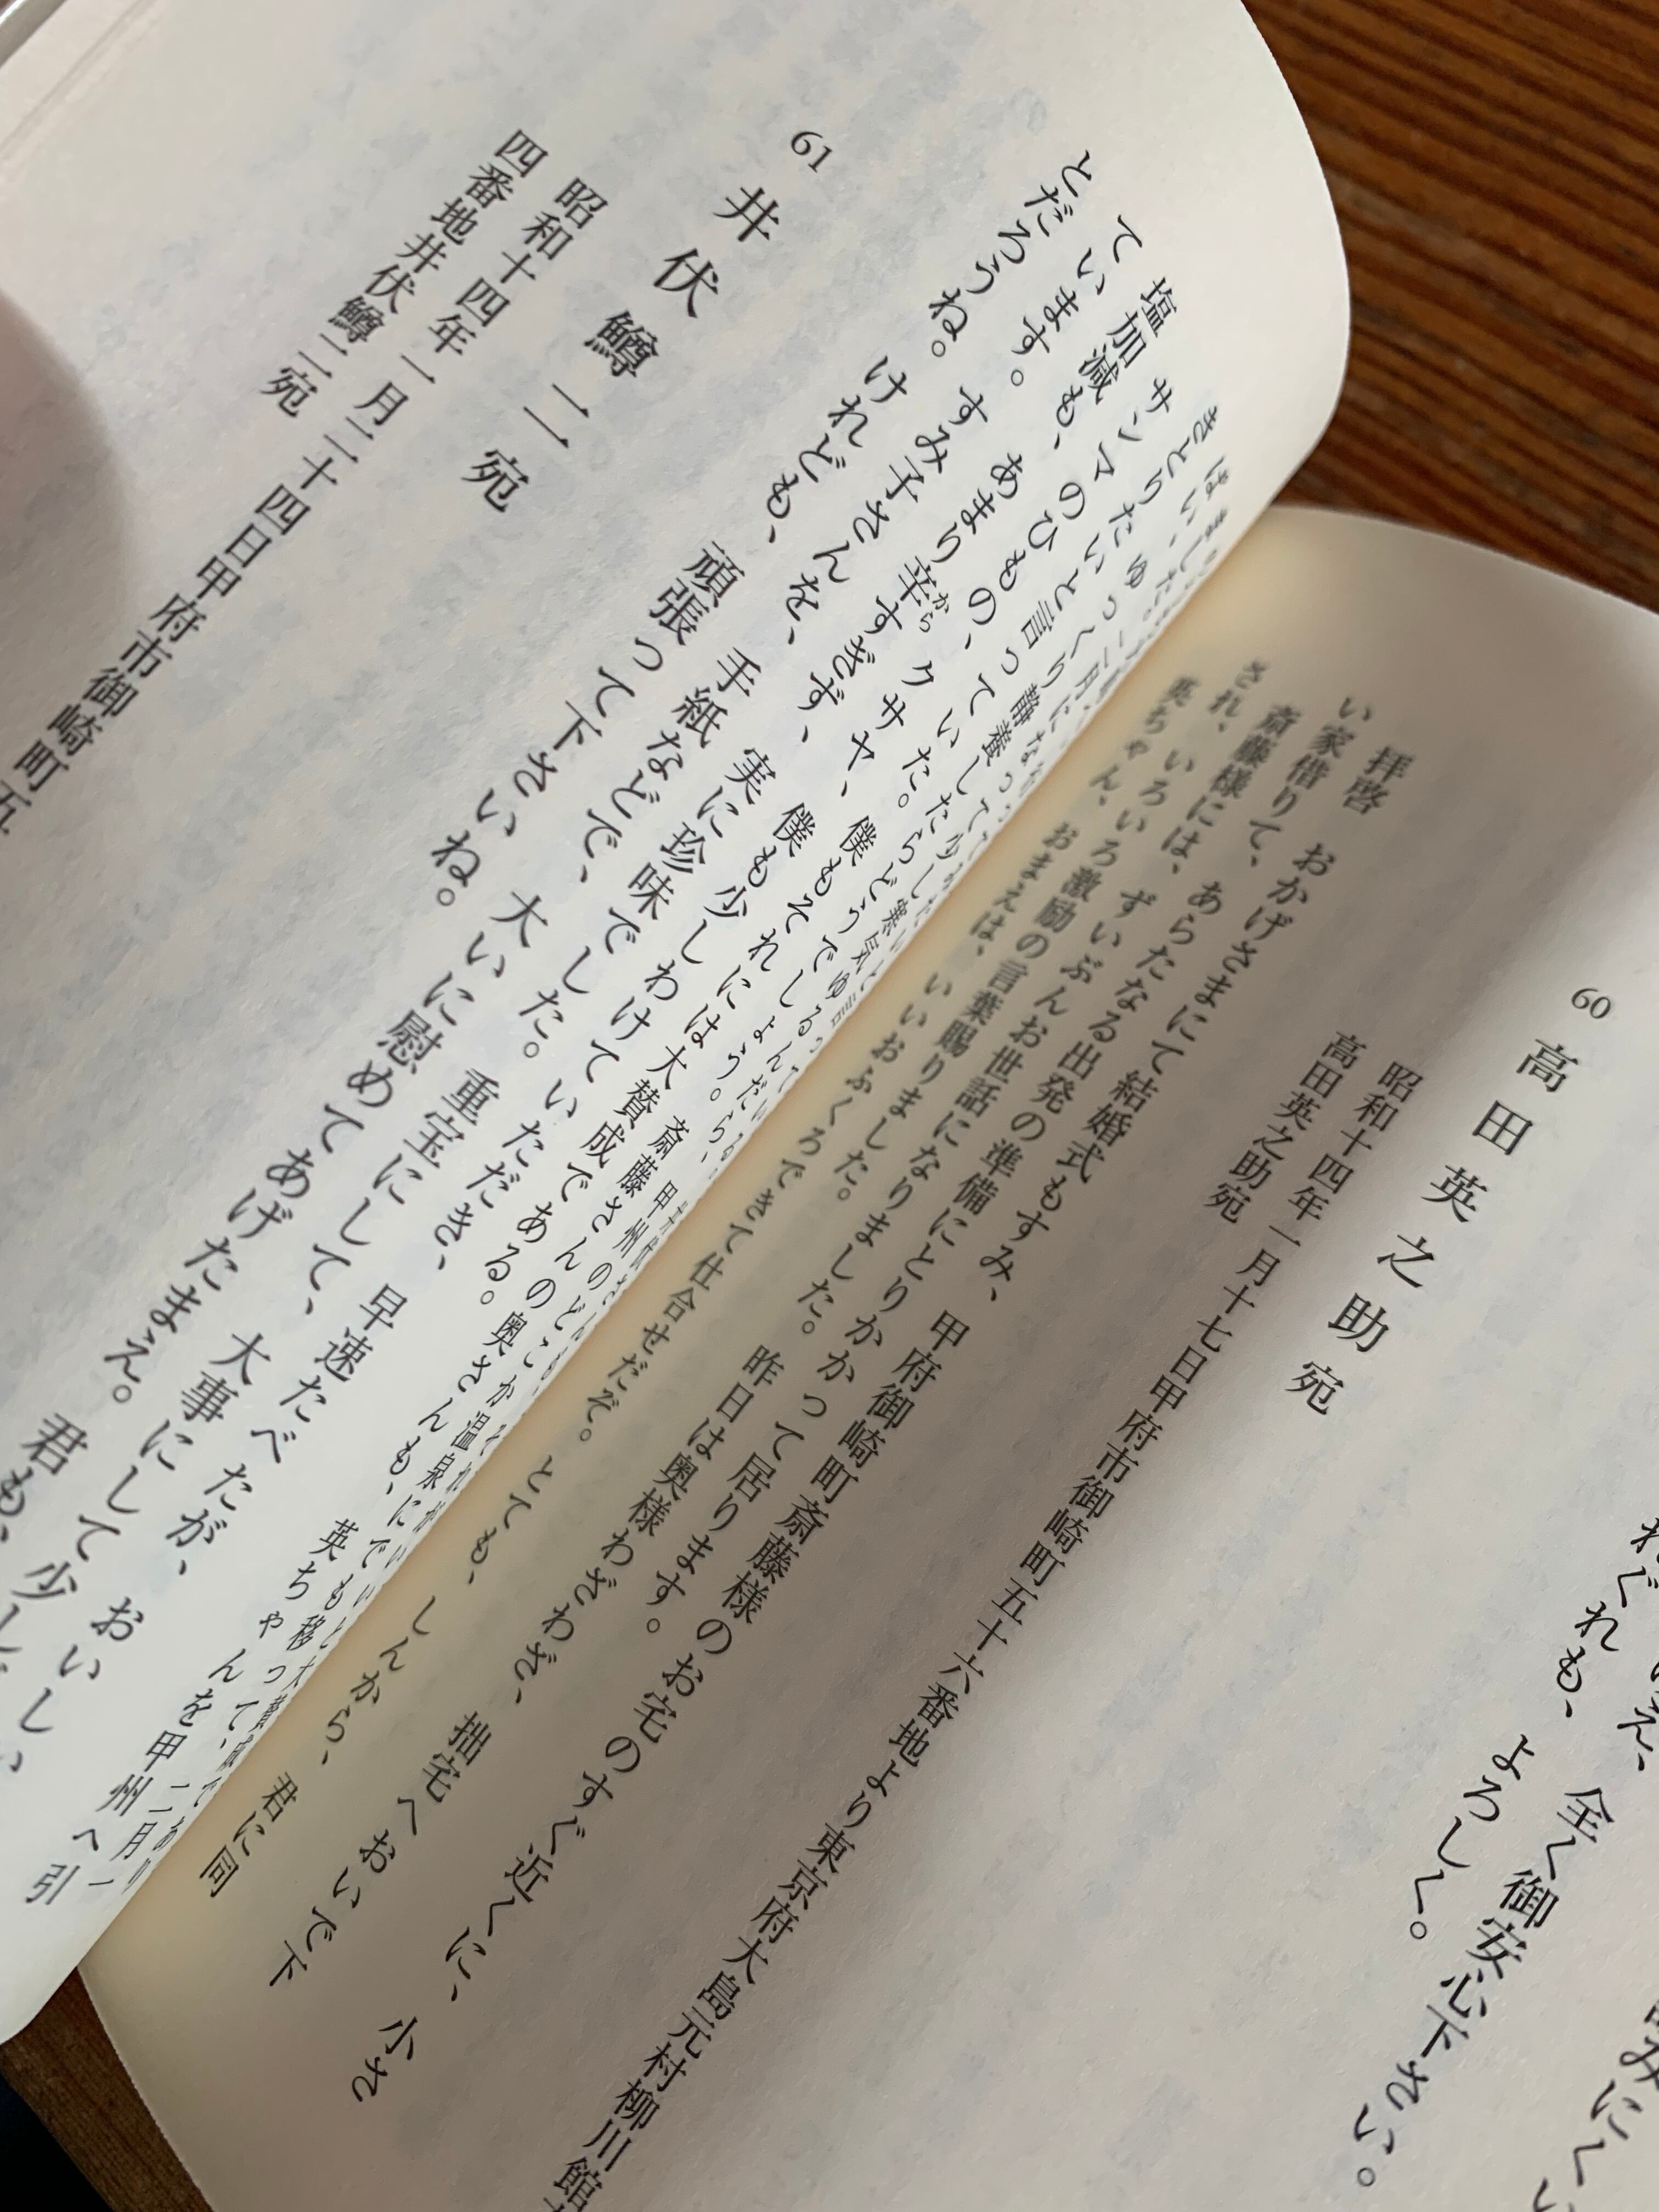 全く御安心下さい。
れぐれも、よろしく。
60 高田英之助宛
昭和十四年一月十七日甲府市御崎町五十六番地より東京府大島元村柳川館
高田英之助宛
拝啓　おかげさまにて結婚式もすみ、甲府御崎町斎藤様のお宅のすぐ近くに、小さ
い家借りて、あらたなる出発の準備にとりかかって居ります。
斎藤様には、ずいぶんお世話になりました。昨日は奥様わざわざ、拙宅へおいで下
され、いろいろ激励の言葉賜りました。
英ちゃん、おまえは、いいおふくろできて仕合せだぞ。とても、しんから、君に同
斎藤さんの奥さんも、英ちゃんを甲州へ引
きとりたいと言っていた。僕もそれには大賛成である。
サンマのひもの、クサヤ、僕も少しわけていただき、早速たべたが、おいしい、
塩加減も、あまり辛すぎず、実に珍味でした。重宝にして、大事にして少し
ています。すみ子さんを、手紙などで、大いに慰めてあげたまえ。君も、
とだろうね。けれども、頑張って下さいね。
61 井伏鱒二宛
昭和十四年一月二十四日甲府市御崎町五
四番地井伏鱒二宛